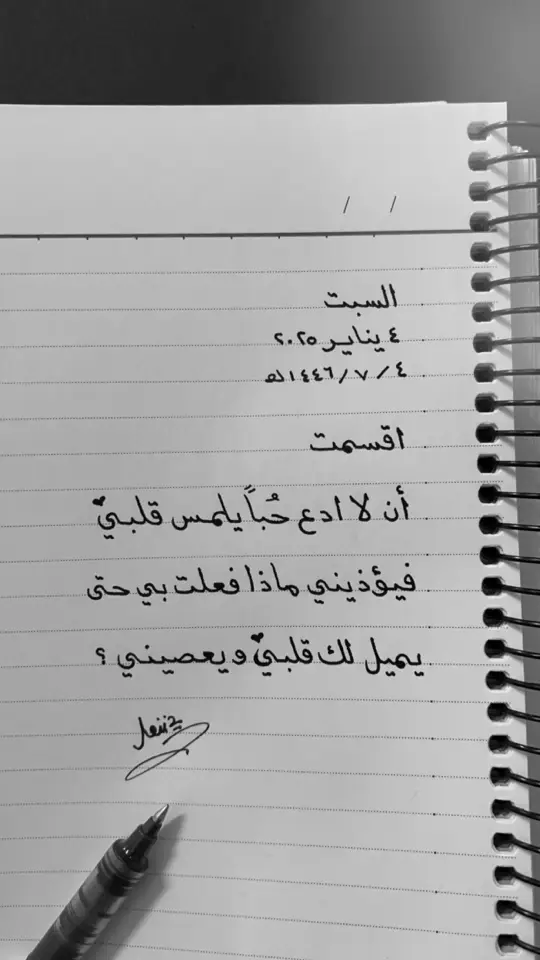 / /
السبت
٤ يناير ٢٠٢٥
٤ / ٧ / ١٤٤٦هـ
اقسمت
أن لا ادع حُباً يلمس قلبي
فيؤذيني ماذا فعلت بي حتى
يميل لك قلبي ويعصيني ؟